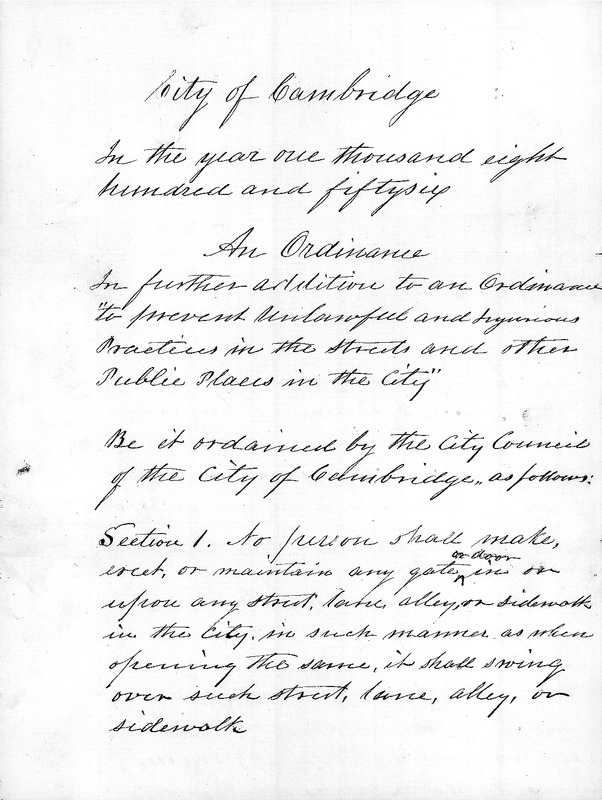 City of Cambridge
In the year one thousand eight
hundred and fiftysix
An Ordinance
In further addition to an Ordinance
"to prevent Unlawful and Injurious
Practices in the Streets and other
Public Places in the City"
Be it ordained by the City Council
of the City of Cambridge, as follows:
Section 1. No person shall make,
or door
erect, or maintain any gate in or
upon any street, lane alley, or sidewalk
in the City, in such manner as when
opening the same, it shall swing
over such street, lane, alley, or
sidewalk